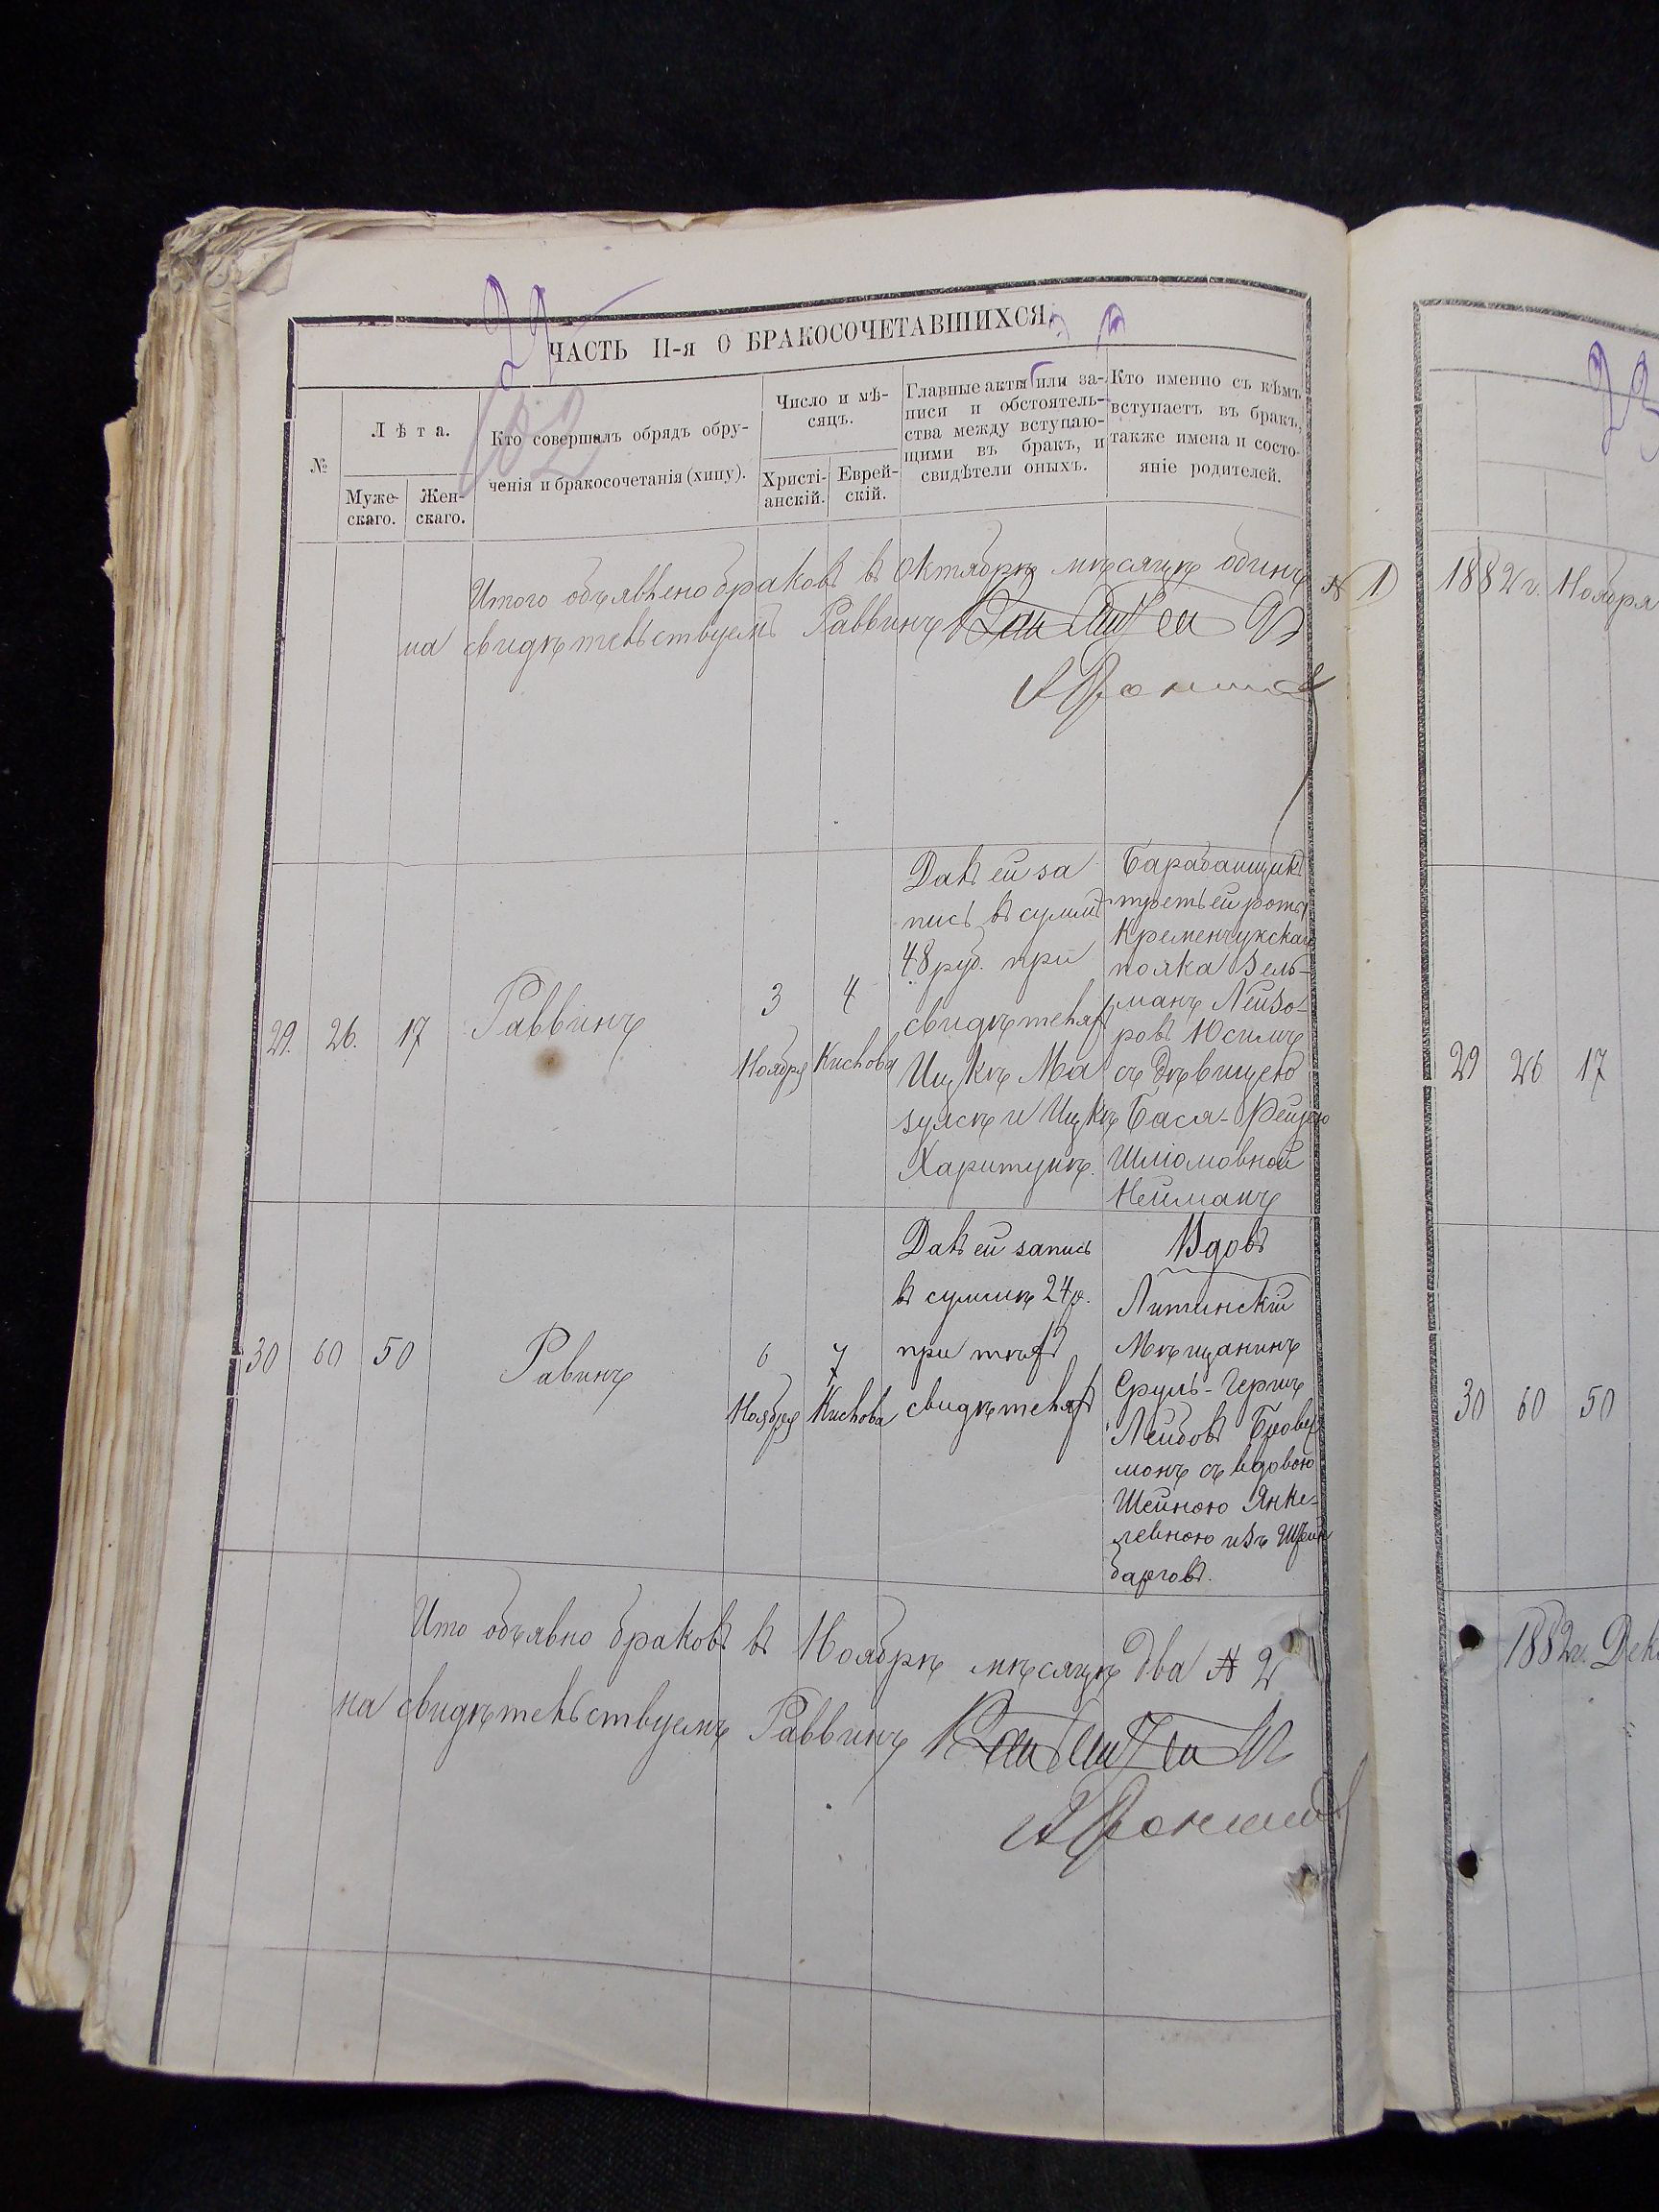 22
ЧАСТЬ II-я О БРАКОСОЧЕТАВШИХСЯ.
№
Лѣта.
Муже-
скаго.
Жен-
скаго.
Кто совершалъ обрядъ обру-
ченія и бракосочетанія (хипу).
Число и мѣ-
сяцъ.
Христі-
анскій.
Еврей-
скій.
Главные акты или за-
писи и обстоятель-
ства между вступаю-
щими въ бракъ, и
свидѣтели оныхъ.
Кто именно съ кѣмъ
вступаетъ въ бракъ,
также имена и состо-
яніе родителей.
102
Итого объявлено браковъ въ Октябрѣ мѣсяцѣ одинъ № 1
на свидѣтельствуемъ Раввинъ
29. 26. 17
Раввинъ
3
Ноября
4
Кислова
Далъ ей за
пись въ суммѣ
48 руб. при
свидѣтеляхъ
Ицкѣ Ма
зурскѣ и Ицкѣ
Харитункѣ.
Барабанщикъ
третьей роты
Кременчукскаго
полка Зель-
манъ Лейзо-
ровъ Юсимъ
съ дѣвицею
Бася-Рейзею
Шліомовной
Нейманъ
30 60 50
Равинъ
6
Ноября
7
Кислова
Далъ ей запись
въ суммѣ 24 р.
при тѣхъ
свидѣтеляхъ
Вдовъ
Литинскій
Мѣщанинъ
Сруль-Гершъ
Лейбовъ
монъ съ вдовою
Шейною Янке-
левною изъ
барговъ.
Ито объявно браковъ въ Ноябрѣ мѣсяцѣ два № 2
на свидѣтельствуемъ Раввинъ
1882 г. Ноября
29 26 17
30 60 50
1882 г. Дек